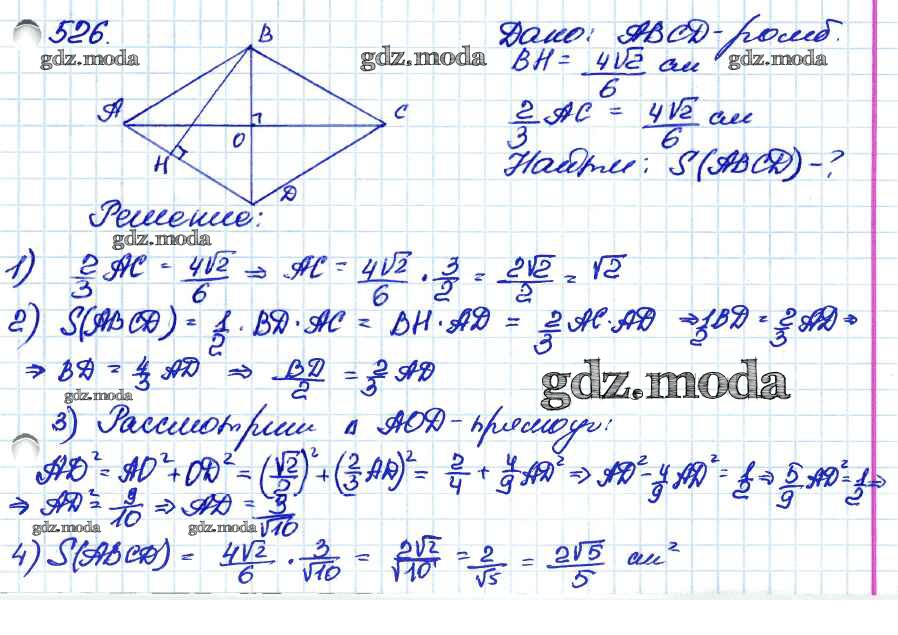 526.
gdz.moda
B
A
C
O
H
D
gdz.moda
Дано: ABCD-ромб.
BH = 4√2/6 см
gdz.moda
2/3 AC = 4√2/6 см
Найти: S(ABCD)-?
Решение:
gdz.moda
1) 2/3 AC = 4√2/6 ⇒ AC = 4√2/6 · 3/2 = 2√2/2 = √2
2) S(ABCD) = 1/2 · BD · AC = BH · AD = 2/3 AC · AD ⇒ 1/2 BD = 2/3 AD ⇒
⇒ BD = 4/3 AD ⇒ BD/2 = 2/3 AD
gdz.moda
gdz.moda
3) Рассмотрим △ AOD-прямоуг:
AD² = AO² + OD² = (√2/2)² + (2/3 AD)² = 2/4 + 4/9 AD² ⇒ AD² - 4/9 AD² = 1/2 ⇒ 5/9 AD² = 1/2 ⇒
⇒ AD² = 9/10 ⇒ AD = 3/√10
gdz.moda
gdz.moda
4) S(ABCD) = 4√2/6 · 3/√10 = 2√2/√10 = 2/√5 = 2√5/5 см²